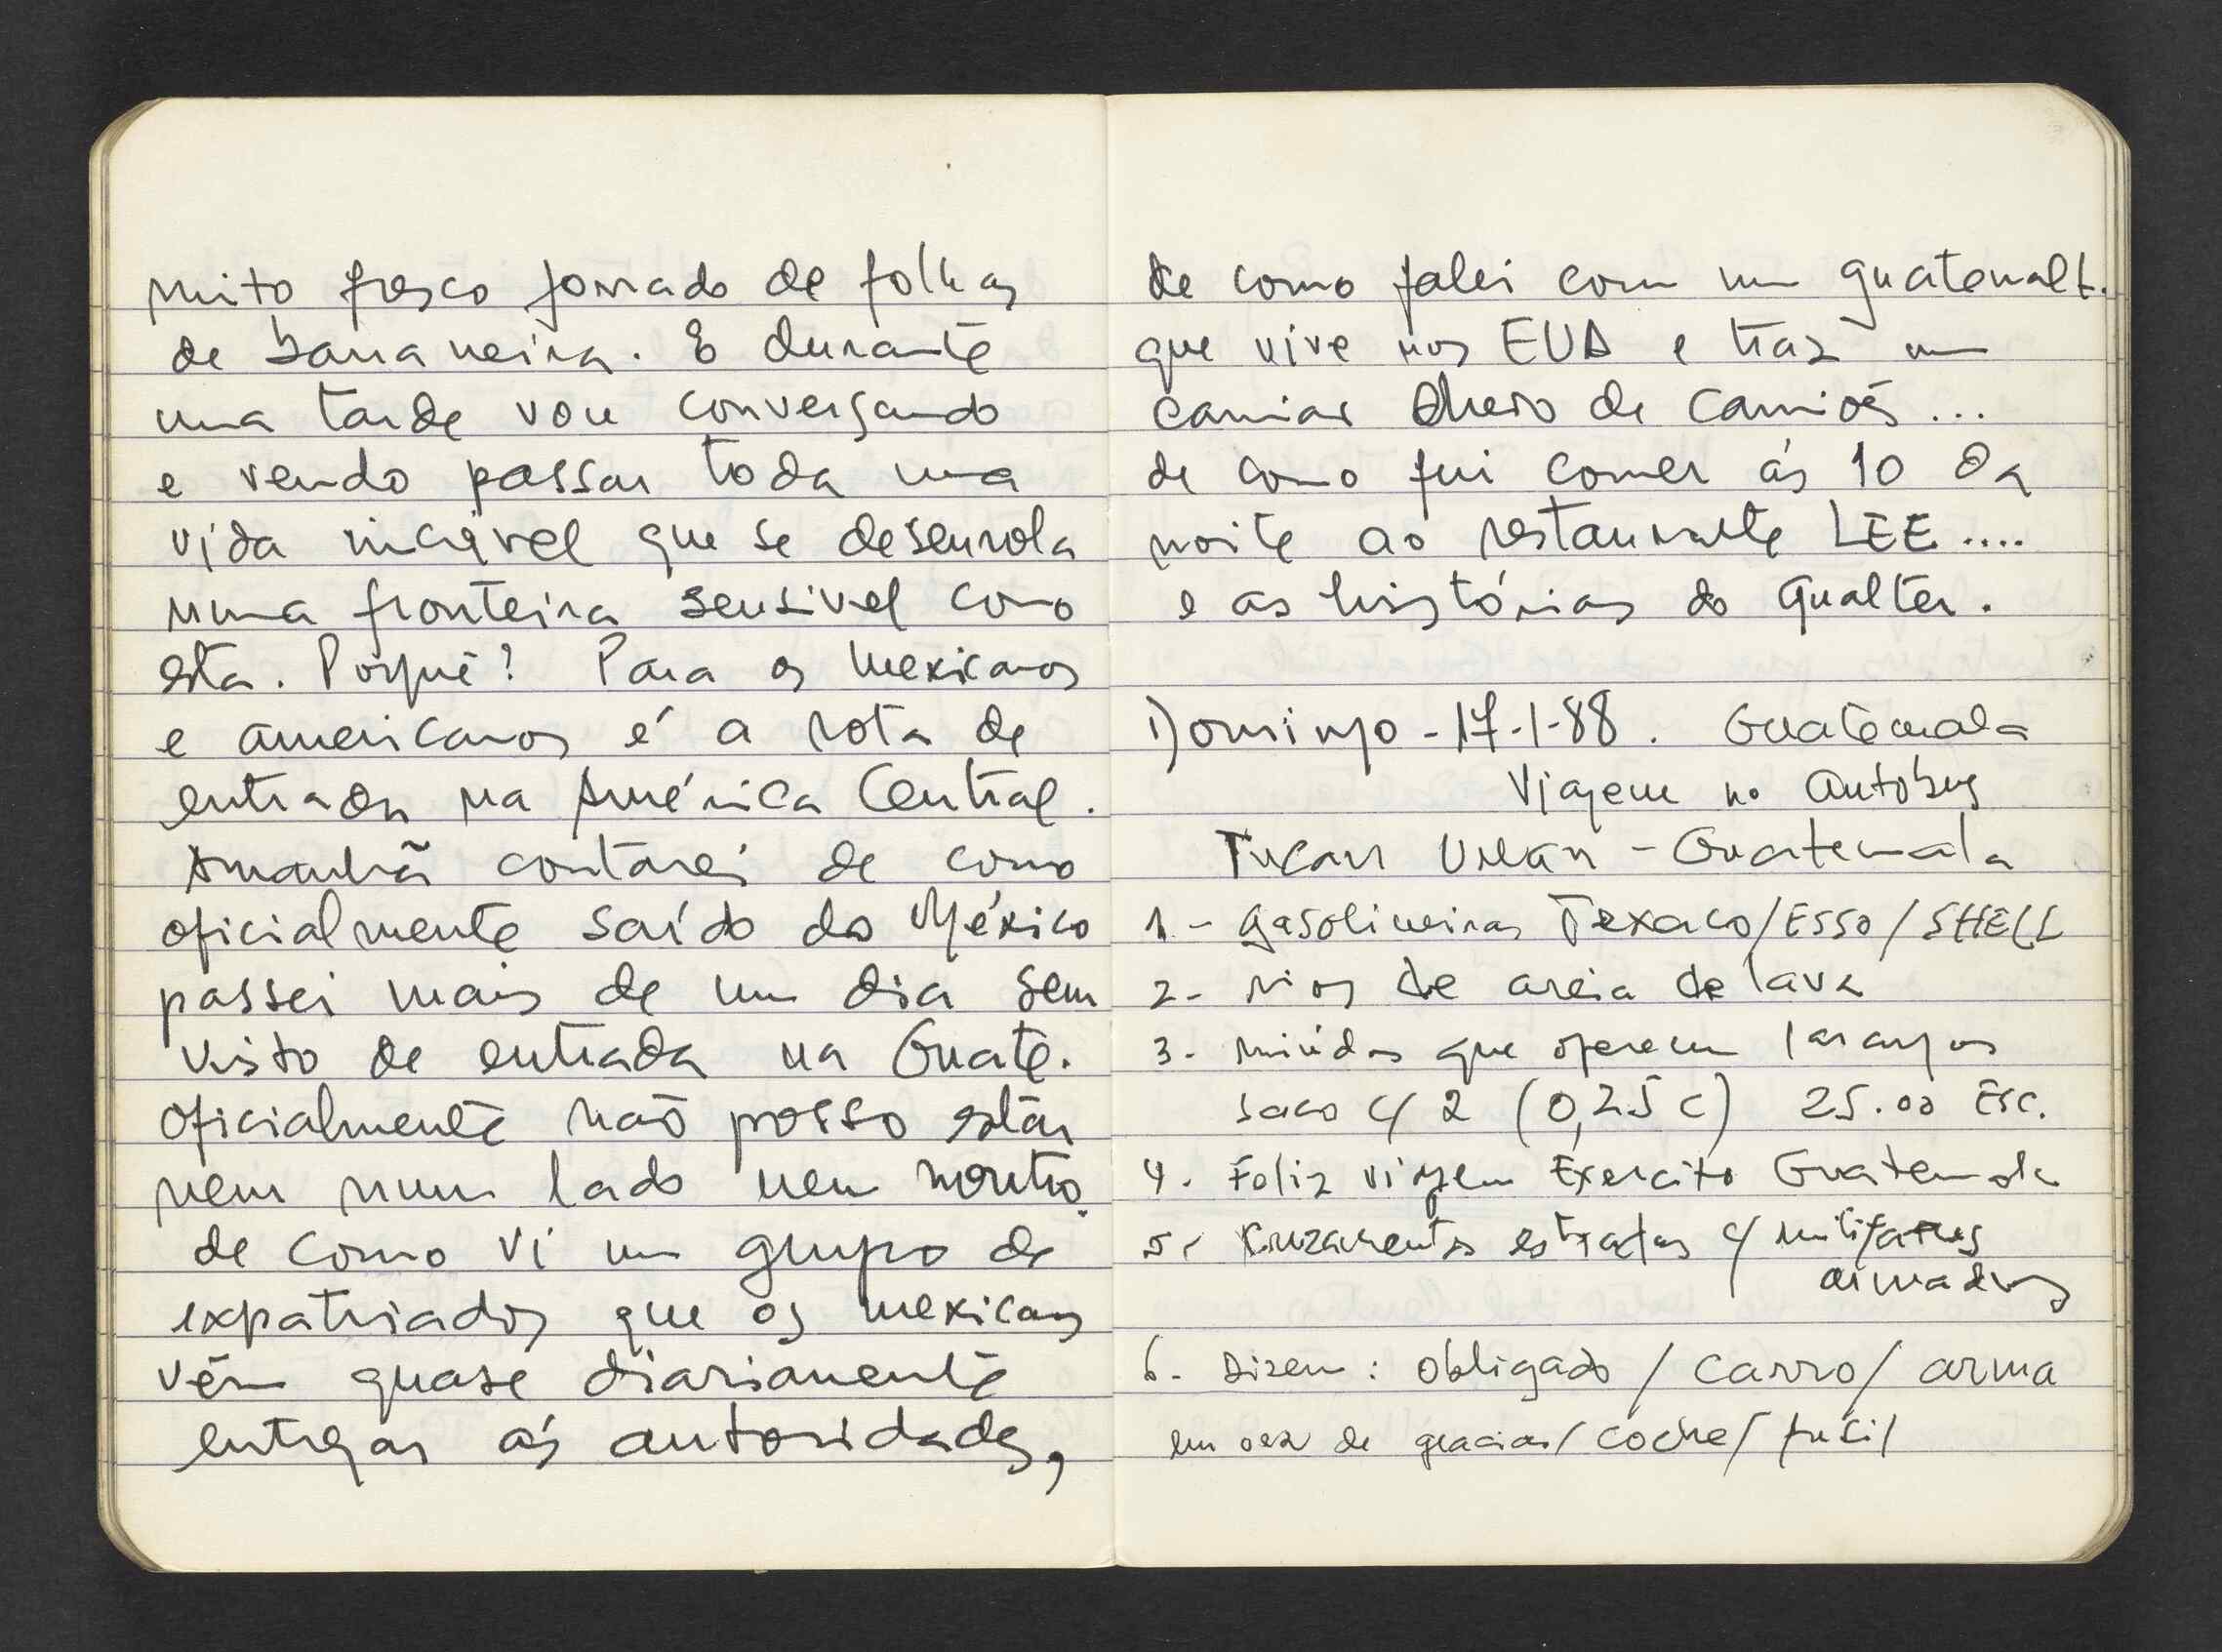 muito fresco forrado de folhas
de bananeira. E durante
uma tarde vou conversando
e vendo passar toda uma
vida incrivel que se desenrola
numa fronteira sensivel como
esta. Porquê? Para os mexicanos
e americanos é a rota de
entrada na América Central.
Amanhã contarei de como
oficialmente saído do México
passei mais de um dia sem
visto de entrada na Guate.
Oficialmente não posso estar
nem num lado nem noutro.
de como vi um grupo de
expatriados que os mexicanos
vêm quase diariamente
entregar ás autoridades,
de como falei com um guatemalt.
que vive nos EUA e traz um
camião cheio de camiões...
de como fui comer ás 10 da
noite ao restaurante LEE....
e as histórias do Gualter.
Domingo - 17-1-88. Guatemala
Viagem no Autobus
Tucan Uman - Guatemala
1 - Gasolineiras Texaco/ESSO/SHELL
2 - rios de areia de lava
3 - miúdos que oferecem laranjas
saco c/ 2 (0,25 c) 25.00 Esc.
4 - Feliz viagem Exercito Guatemala
5 - Cruzamentos estradas c/ militares
armados
6 - Dizem: Obligado / Carro / arma
em vez de gracias / coche / fusil